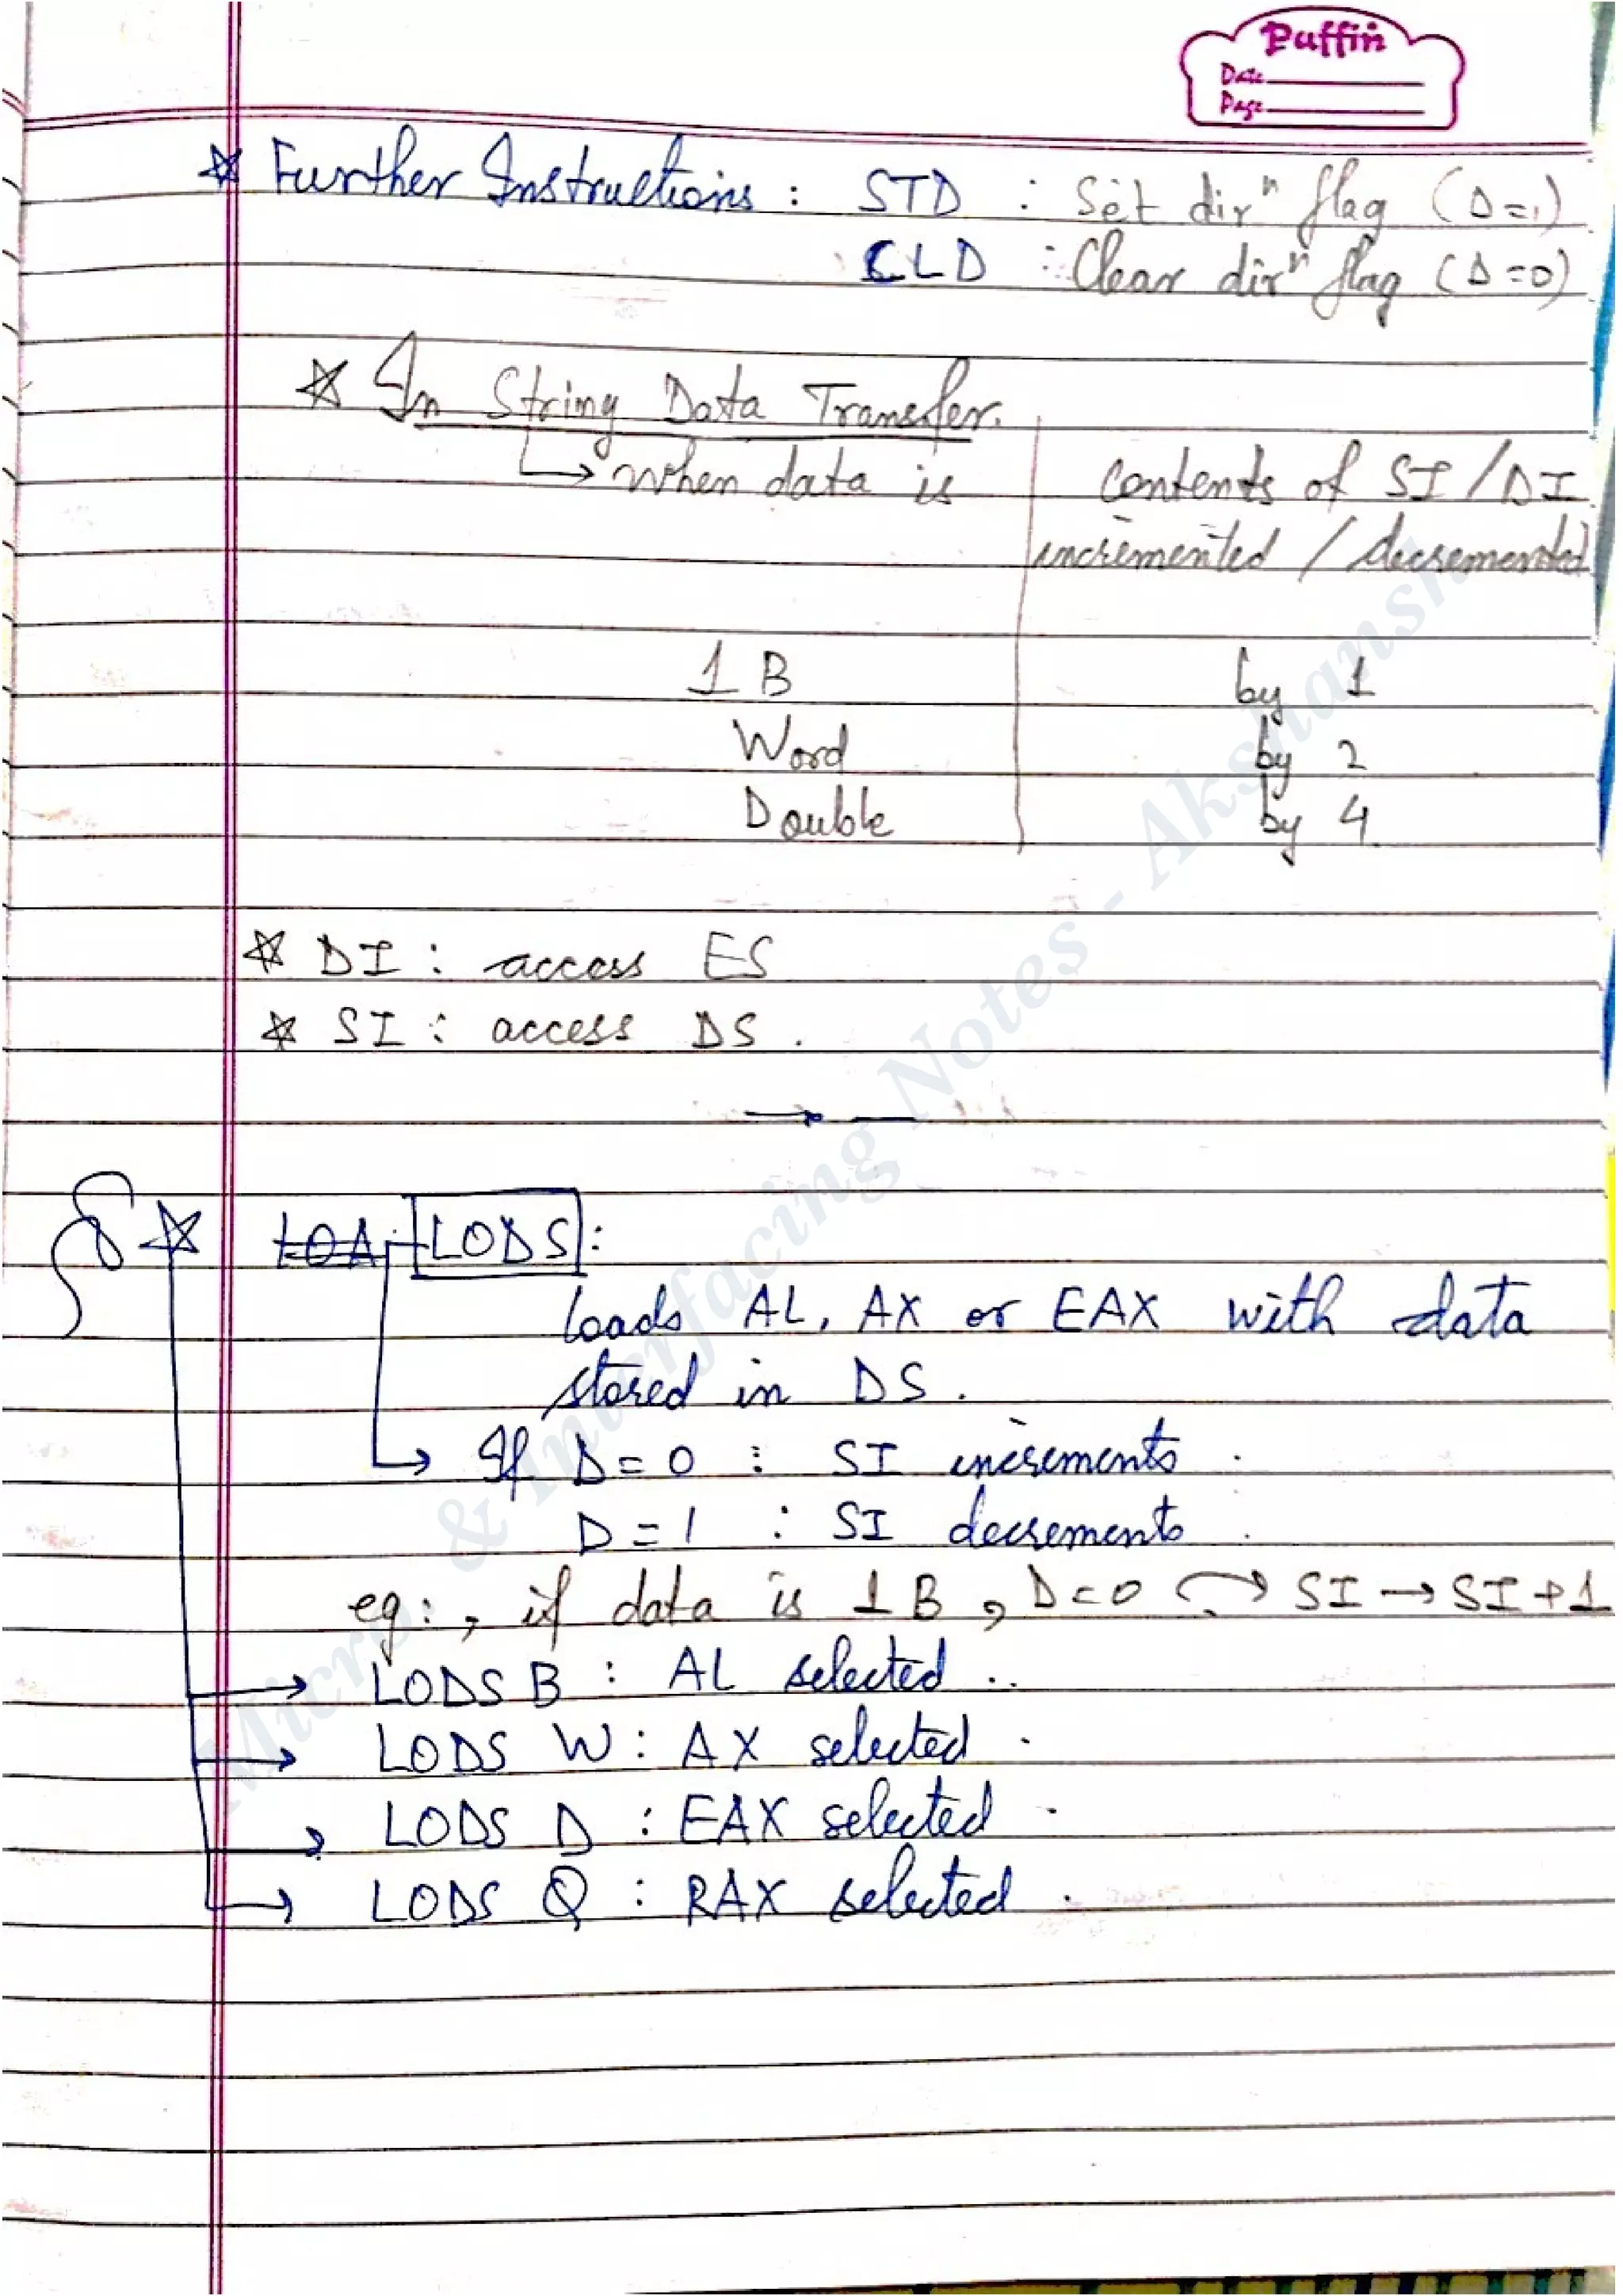 Puffin
Date
Page
☆ Further Instructions : STD : Set dirⁿ flag (D=1)
CLD : Clear dirⁿ flag (D=0)
☆ In String Data Transfer.
↳ when data is | contents of SI / DI
incremented / decremented
1 B | by 1
Word | by 2
Double | by 4
☆ DI : access ES
☆ SI : access DS .
☆ LOA LODS :
loads AL, AX or EAX with data
stored in DS .
↳ If D = 0 : SI increments .
D = 1 : SI decrements .
eg: , if data is 1 B , D=0 → SI → SI+1
→ LODS B : AL selected .
→ LODS W : AX selected .
→ LODS D : EAX selected .
→ LODS Q : RAX selected .
Micro. & Interfacing Notes - Akshansh